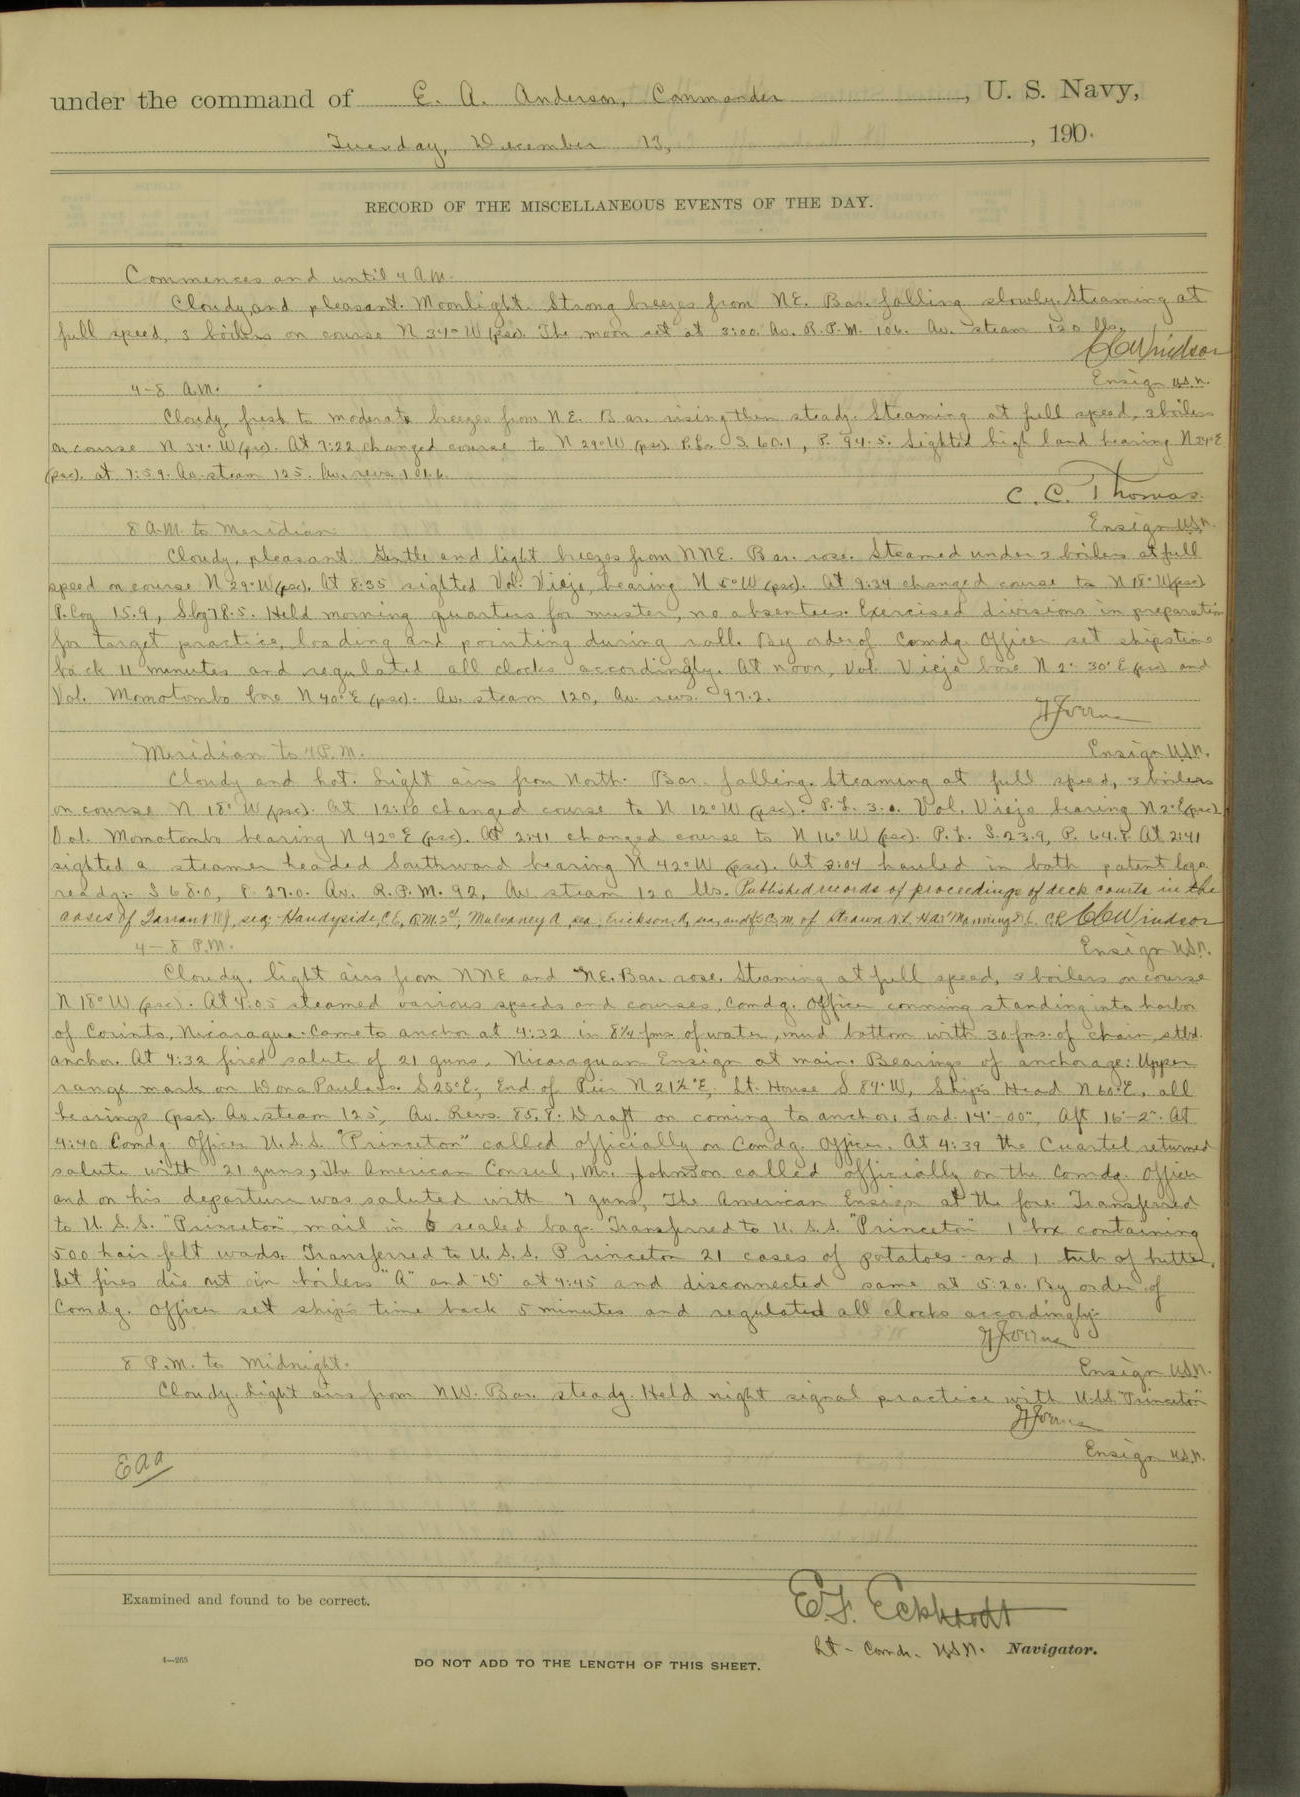 under the command of E. A. Anderson, Commander, U. S. Navy,
Tuesday, December 13, 1910.
RECORD OF THE MISCELLANEOUS EVENTS OF THE DAY.
Commences and until 4 A.M.
Cloudy and pleasant. Moonlight. Strong breezes from NE. Bar. falling slowly. Steaming at
full speed, 3 boilers on course N 34° W (psc). The moon set at 3:00. Av. R.P.M. 106. Av. steam 120 lbs.
CC Windsor
Ensign U.S.N.
4-8 A.M.
Cloudy, fresh to moderate breezes from NE. Bar. rising then steady. Steaming at full speed, 3 boilers
on course N 34° W (psc). At 7:22 changed course to N 29° W (psc) P.L. S. 60.1, P. 94.5. Sighted high land bearing
(psc). at 7:59. Av. steam 125. Av. revs. 101.6.
C. C. Thomas.
Ensign U.S.N.
8 A.M. to Meridian
Cloudy, pleasant. Gentle and light breezes from NNE. Bar. rose. Steamed under 3 boilers at full
speed on course N 29° W (psc). At 8:35 sighted Vol. Viejo, bearing N 5° W (psc). At 9:34 changed course to N 18° W (psc)
P. Log 15.9, S. log 78.5. Held morning quarters for muster, no absentees. Exercised divisions in preparation
for target practice, loading and pointing during roll. By order of Comdg. Officer set ships time
back 11 minutes and regulated all clocks accordingly. At noon, Vol. Viejo bore N 2° 30' E (psc) and
Vol. Momotombo bore N 40° E (psc). Av. steam 120, Av. revs. 97.2.
Ensign U.S.N.
Meridian to 4 P.M.
Cloudy and hot. Light airs from North. Bar. falling. Steaming at full speed, 3 boilers
on course N 18° W (psc). At 12:10 changed course to N 12° W (psc). P.L. 3.0. Vol. Viejo bearing N 2° E (psc)
Vol. Momotombo bearing N 42° E (psc). At 2:41 changed course to N 16° W (psc). P.L. S. 23.9, P. 64.8. At 2:41
sighted a steamer headed Southward bearing N 42° W (psc). At 3:04 hauled in both patent logs
readg:- S 68.0, P. 27.0. Av. R.P.M. 92, Av steam 120 lbs. Published records of proceedings of deck courts in the
cases of Tarrant, W.J, sea; Handyside, C.E, P.M. 2d; Mulvaney A, sea; Erickson, A, sea, and of S.C.M. of Strawn CC Windsor
Ensign U.S.N.
4-8 P.M.
Cloudy, light airs from NNE and NE. Bar. rose. Steaming at full speed, 3 boilers on course
N 18° W (psc). At 4:05 steamed various speeds and courses, Comdg. Officer conning standing into harbor
of Corinto, Nicaragua. Came to anchor at 4:32 in 8¼ fms. of water, mud bottom with 30 fms. of chain, stbd.
anchor. At 4:32 fired salute of 21 guns, Nicaraguan Ensign at main. Bearings of anchorage: Upper
range mark on Dona Paula Is. S 25° E; End of Pier N 21½° E; Lt. House S 84° W, Ship's Head N 60° E, all
bearings (psc). Av. steam 125, Av. Revs. 85.8. Draft on coming to anchor, Fwd. 14'-00", Aft 16'-2". At
4:40 Comdg. Officer U.S.S. "Princeton" called officially on Comdg. Officer. At 4:39 the Cuartel returned
salute with 21 guns, The American Consul, Mr. Johnson called officially on the Comdg. Officer
and on his departure was saluted with 7 guns, The American Ensign at the fore. Transferred
to U.S.S. "Princeton" mail in 6 sealed bags. Transferred to U.S.S. "Princeton" 1 box containing
500 hair felt wads. Transferred to U.S.S. Princeton 21 cases of potatoes and 1 tub of butter.
Let fires die out in boilers "A" and "D" at 4:45 and disconnected same at 5:20. By order of
Comdg. Officer set ship's time back 5 minutes and regulated all clocks accordingly-
Ensign U.S.N.
8 P.M. to Midnight.
Cloudy. Light airs from NW. Bar. steady. Held night signal practice with U.S.S. "Princeton"
Ensign U.S.N.
EAA
Examined and found to be correct.
E.F. Eckhardt
Lt-Comdr. USN. Navigator.
4—265
DO NOT ADD TO THE LENGTH OF THIS SHEET.